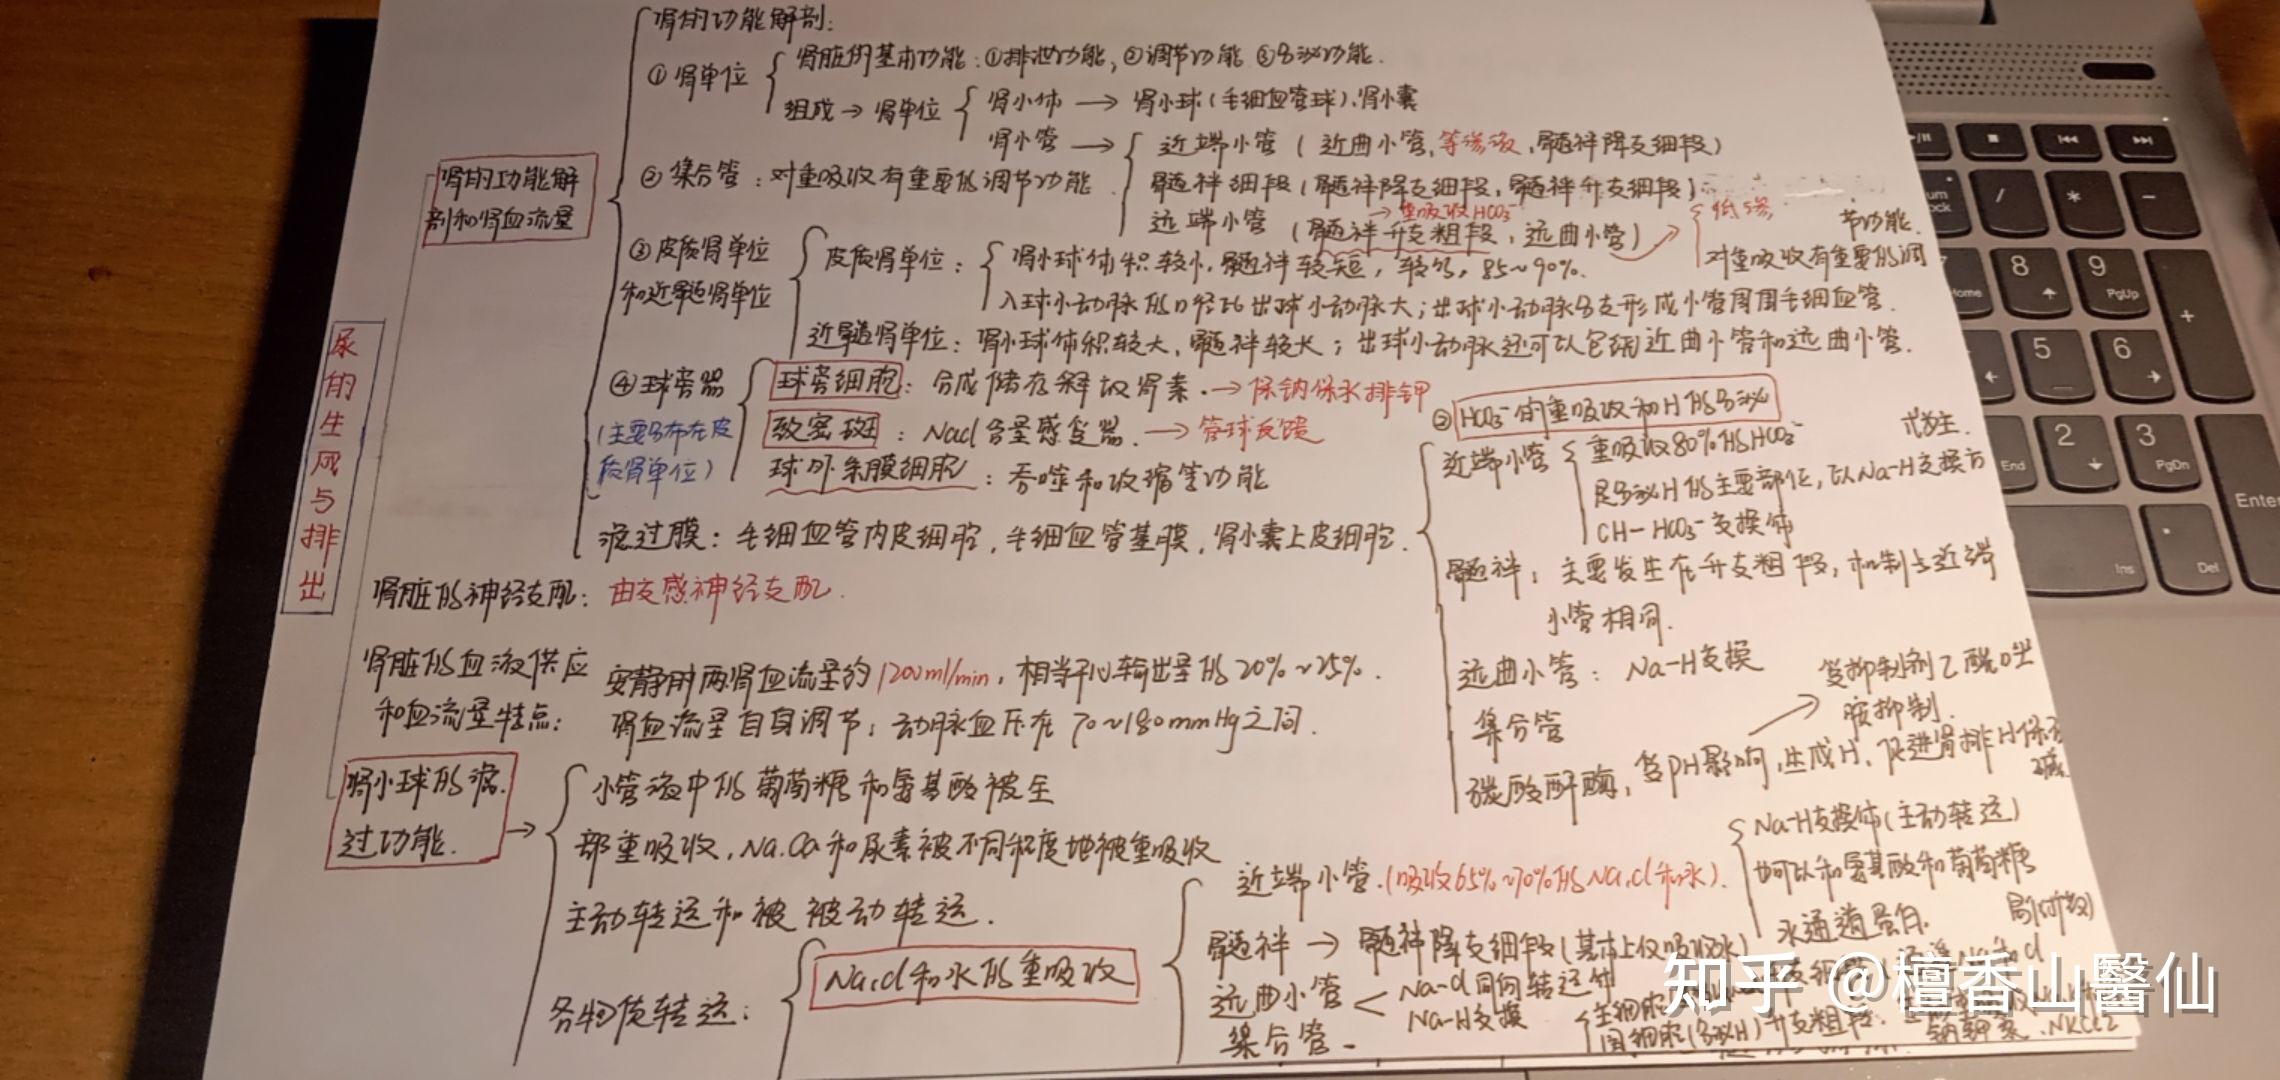 尿的生成与排出
肾的功能解
剖和肾血流量
肾的功能解剖:
①肾单位
肾脏的基本功能:①排泄功能,②调节功能 ③分泌功能.
组成→肾单位
肾小体→肾小球(毛细血管球).肾小囊
肾小管→
近端小管(近曲小管,等渗液,髓袢降支细段)
髓袢细段(髓袢降支细段,髓袢升支细段)
→重吸收HCO₃⁻
远端小管(髓袢升支粗段,远曲小管)
低渗
对重吸收有重要的调
节功能.
②集合管:对重吸收有重要的调节功能.
③皮质肾单位
和近髓肾单位
皮质肾单位:
肾小球体积较小,髓袢较短,较多,85~90%.
入球小动脉的口径比出球小动脉大;出球小动脉分支形成小管周围毛细血管.
近髓肾单位:肾小球体积较大,髓袢较长;出球小动脉还可以包绕近曲小管和远曲小管.
④球旁器
(主要分布在皮
质肾单位)
球旁细胞:合成储存释放肾素.→保钠保水排钾
致密斑:Nacl含量感受器.→管球反馈
球外系膜细胞:吞噬和收缩等功能
滤过膜:毛细血管内皮细胞,毛细血管基膜,肾小囊上皮细胞.
肾脏的神经支配:由交感神经支配.
肾脏的血液供应
和血流量特点:
安静时两肾血流量约1200ml/min,相当于心输出量的20%~25%.
肾血流量自身调节:动脉血压在70~180mmHg之间.
肾小球的滤
过功能.
→
小管液中的葡萄糖和氨基酸被全
部重吸收,Na.Ca和尿素被不同程度地被重吸收
主动转运和被被动转运.
各物质转运:
Na.cl和水的重吸收
近端小管.(吸收65%~70%的Na.cl和水).
Na-H交换体(主动转运)
也可以和氨基酸和葡萄糖
水通道蛋白.
髓袢→髓袢降支细段(基本上仅吸收水)
远曲小管
集合管.
Na-cl同向转运体
Na-H交换
主细胞
闰细胞(分泌H)
升支粗段:
NKCC2
②HCO₃⁻的重吸收和H的分泌
近端小管
重吸收80%的HCO₃⁻
是分泌H的主要部位,以Na-H交换方
式发生.
CH-HCO₃⁻交换体
髓袢:主要发生在升支粗段,机制与近端
小管相同.
远曲小管:Na-H交换
集合管
碳酸酐酶,受PH影响,生成H,促进肾排H保
碱.
受抑制剂乙酰唑
胺抑制.
知乎 @檀香山醫仙